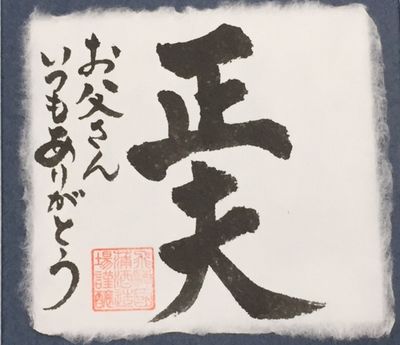 正夫
お父さん
いつもありがとう